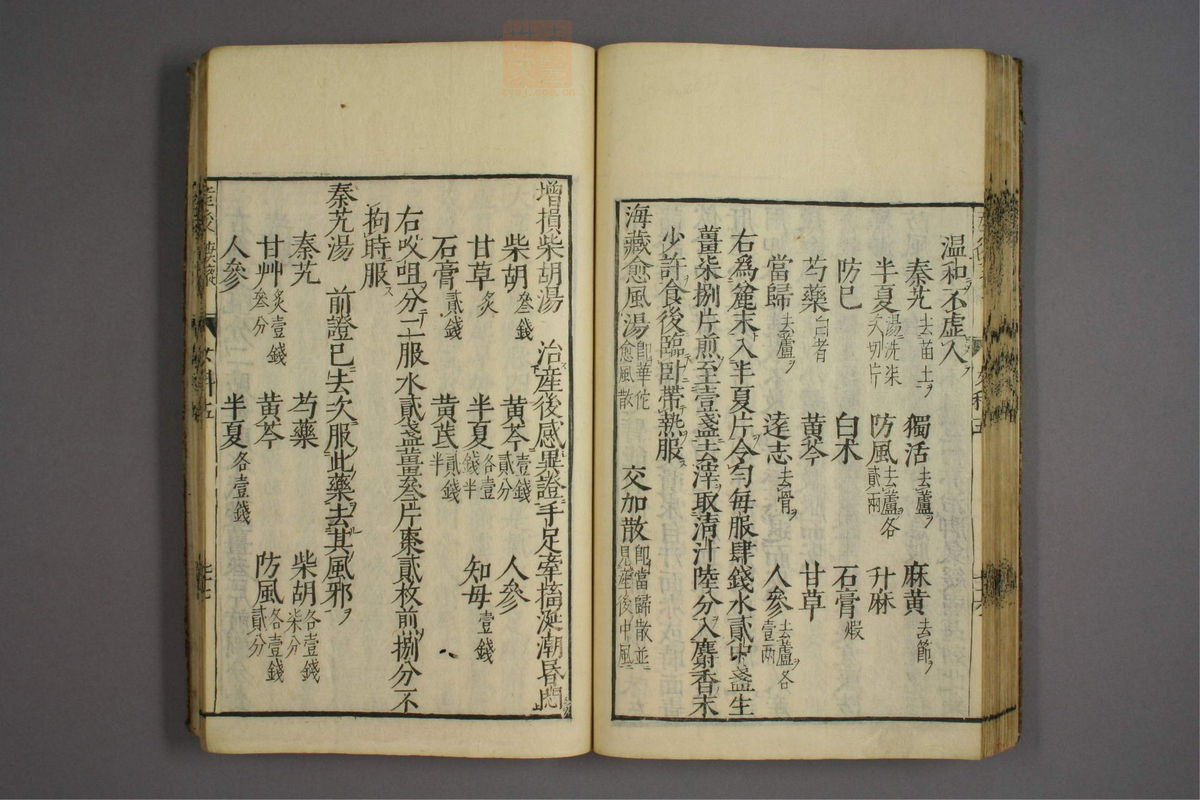 温和不虚入
秦艽去苗土 獨活去蘆 麻黄去節
半夏湯洗柒次切片 防風去蘆各貳兩 升麻
防巳 白术 石膏煅
芍藥白者 黄芩 甘草
當歸去蘆 遠志去骨 人參去蘆各壹兩
右爲麄末入半夏片令勻每服肆錢水貳中盞生
薑柒捌片煎至壹盞去滓取清汁陸分入麝香末
少許食後臨卧帶熱服
海藏愈風湯即華佗愈風散 交加散即當歸散並見産後中風
増損柴胡湯 治産後感異證手足牽搐涎潮昏悶
柴胡叄錢 黄芩壹錢貳分 人參
甘草炙 半夏各壹錢半 知母壹錢
石膏貳錢 黄芪貳錢半
右㕮咀分二服水貳盞薑叄片棗貳枚前捌分不
拘時服
秦艽湯 前證巳去次服此藥去其風邪
秦艽 芍藥 柴胡各壹錢柒分
甘艸炙壹錢叄分 黄芩 防風各壹錢貳分
人參 半夏各壹錢
女科五
七七